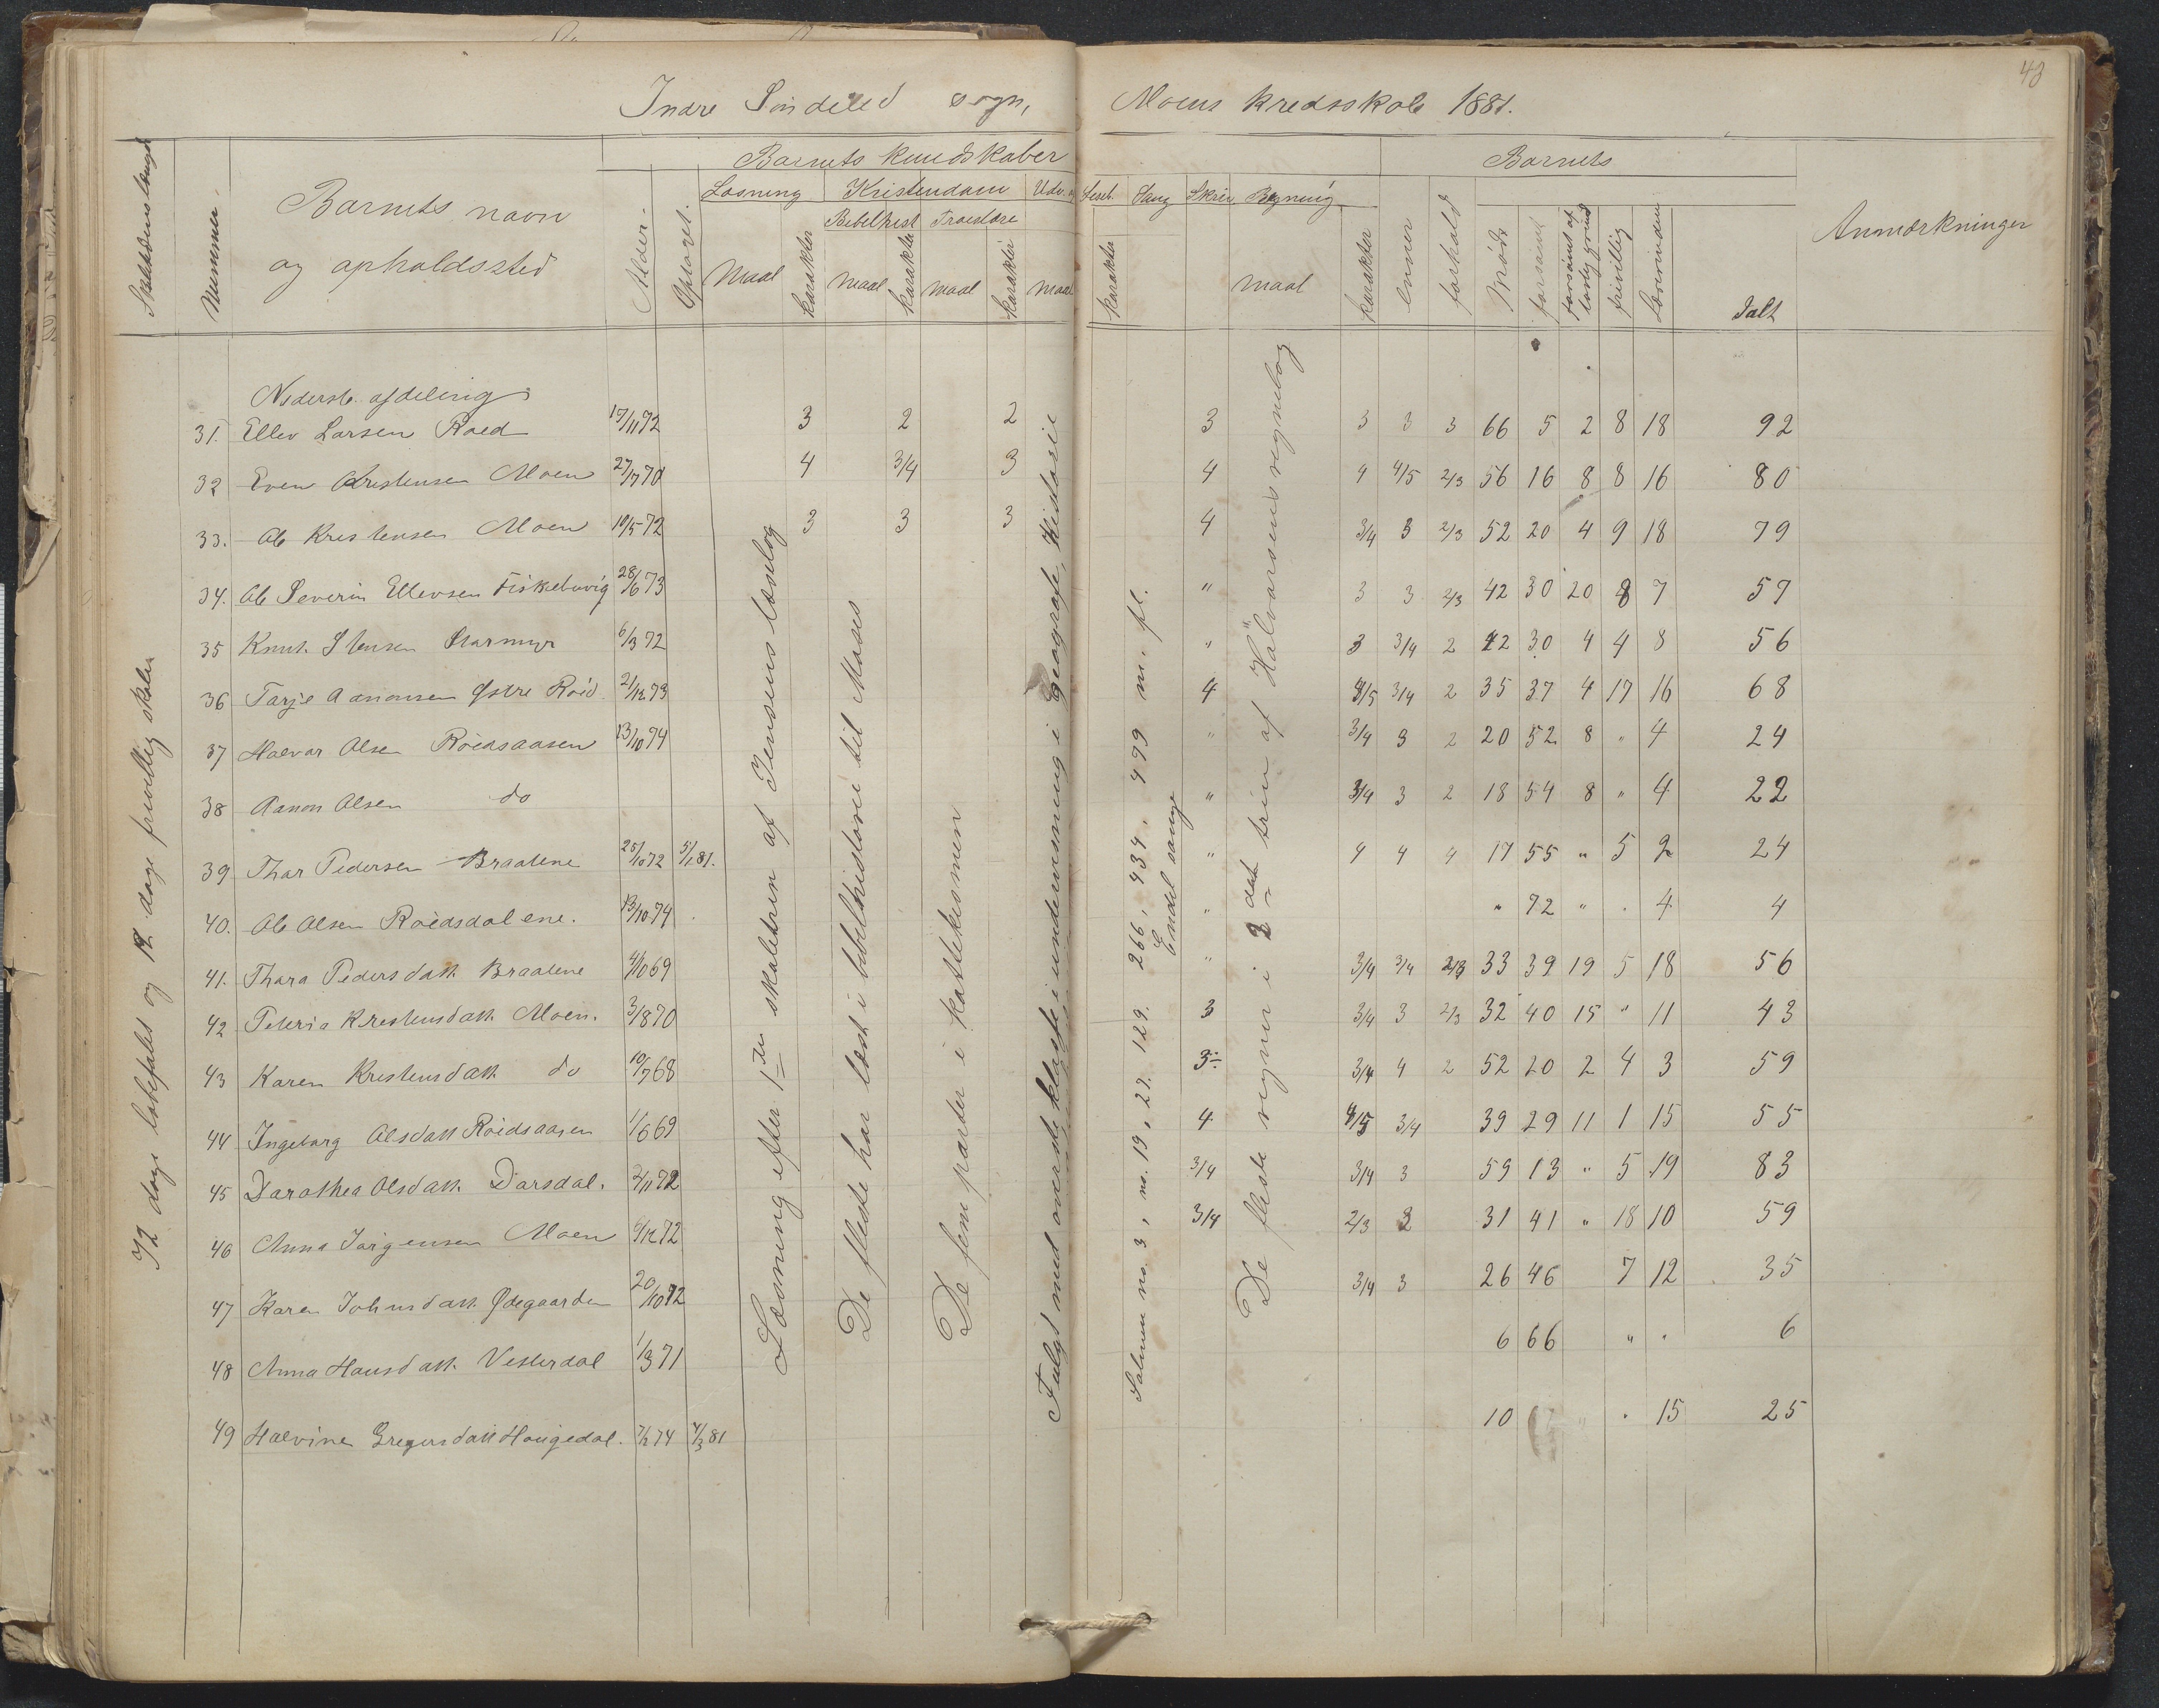 48
Indre Söndeled sogn, Moens kredsskole 1881.
Skoletidens længde
Nummer.
Barnets navn
og opholdssted
Alder.
Optaget.
Barnets kundskaber
Læsning Kristendom Udv. af Læseb. Sang Skriv. Regning
Bibelhist. Troeslære
Maal karakter maal karakter maal karakter maal karakter maal karakter
Barnets
evner forhold
mødt forsømt forsømt af lovlig grund frivillig
Ialt
Anmærkninger
72 dage lobefalet og 12 dage frivillig skole
Nederste afdeling
31. Ellev Larsen Roed 17/11 72 3 2 2 3 3 3 3 66 5 2 8 18 92
32 Even Kristensen Moen 27/7 70 4 3/4 3 4 4 4/5 2/3 56 16 8 8 16 80
33. Ole Kristensen Moen 10/5 72 3 3 3 4 3/4 3 2/3 52 20 4 9 18 79
34. Ole Severin Ellevsen Fiskebuvig 28/6 73 " 3 3 2/3 42 30 20 8 7 57
35 Knut Stensen Starmyr 6/3 72 " 3 3/4 2 42 30 4 4 8 56
36 Tarje Aanonsen Østre Röid 21/12 73 4 4/5 3/4 2 35 37 4 17 16 68
37 Halvor Olsen Röedsaasen 13/10 74 " 3/4 3 2 20 52 8 " 4 24
38 Aanon Olsen do " 3/4 3 2 18 54 8 " 4 22
39 Thor Pedersen Braatene 25/10 72 5/1 81. " 4 4 4 17 55 " 5 2 24
40. Ole Olsen Röedsdalene. 13/10 74 " " 72 " . 4 4
41. Thora Pedersdatt. Braatene 4/10 69 " 3/4 3/4 2/3 33 39 19 5 18 56
42 Peteria Kristensdatt. Moen. 3/8 70 3 3/4 3 2/3 32 40 15 " 11 43
43 Karen Kristensdatt do 10/7 68 3- 3/4 4 2 52 20 2 4 3 59
44 Ingeborg Olsdatt Röidsaasen 1/6 69 4 4/5 3/4 39 29 11 1 15 55
45 Dorothea Olsdatt. Dorsdal. 2/11 72 3/4 3/4 3 59 13 " 5 19 83
46 Anna Jörgensen Moen 9/12 72 3/4 2/3 3 31 41 " 18 10 59
47 Karen Johnsdatt. Ødegaarden 20/10 72 3/4 3 26 46 7 12 35
48 Anna Hansdatt. Vesterdal 1/3 71 6 66 " " 6
49 Halvine Gregersdatt Hougedal. 7/2 74 4/3 81 10 " . 15 25
Læsning efter 1ste skoletrin af Jensens læsebog
De fleste har læst i bibelhistorie til Moses
De fem parter i kattekismen
Fulgt med øverste klasse i undervisning i Geografi, Historie
Salmen no. 3, no. 19, 27. 129. 266, 434, 479 m. fl.
Endel sange
De fleste regner i 2det trin af Halvorsens regnebog